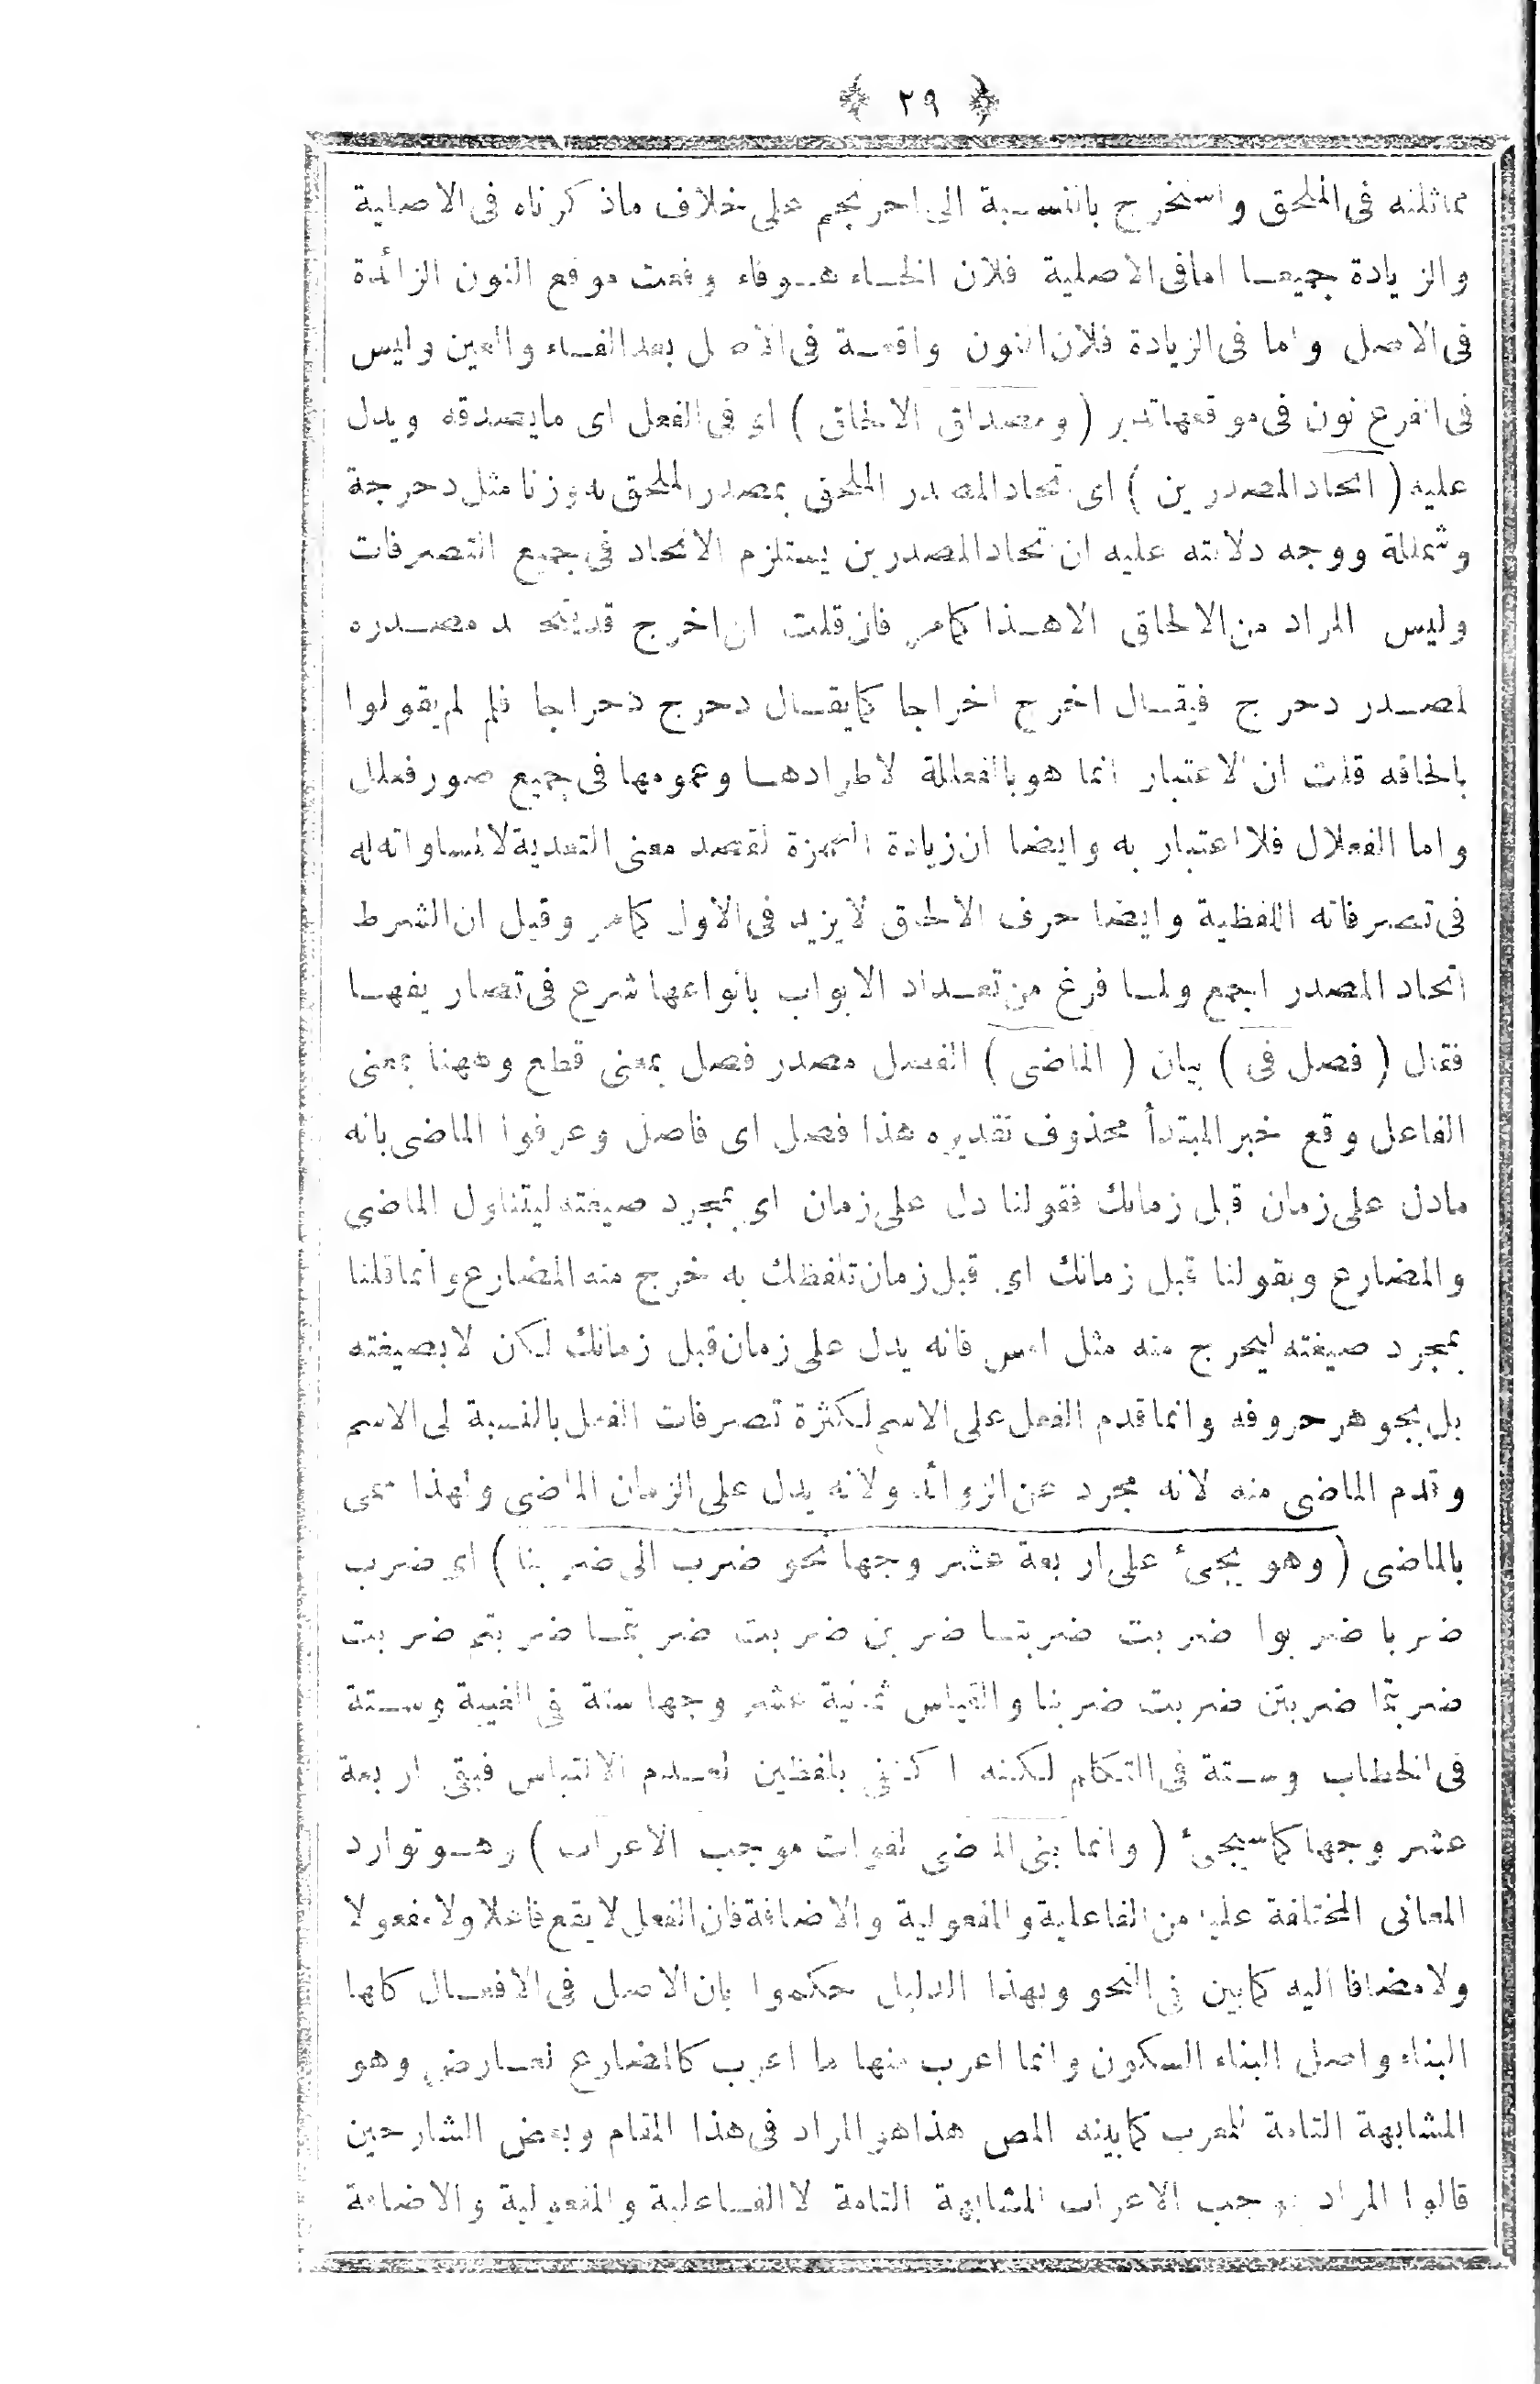 ﴿ ٢٩ ﴾
مماثلته فى الملحق واستخرج بالنسبة الى احرنجم على خلاف ماذكرناه فى الاصلية
والزيادة جميعا امافى الاصلية فلان الخاء هو فاء وقعت موقع النون الزائدة
فى الاصل واما فى الزيادة فلان النون واقعة فى الاصل بعد الفاء والعين وليس
فى الفرع نون فى موقعها تدبر ( ومصداق الالحاق ) اى فى الفعل اى مايصدقه ويدل
عليه ( اتحاد المصدرين ) اى اتحاد المصدر الملحق بمصدر الملحق به وزنا مثل دحرجة
وشمللة ووجه دلالته عليه ان اتحاد المصدرين يستلزم الاتحاد فى جميع التصرفات
وليس المراد من الالحاق الا هذا كمامر فان قلت ان اخرج قد يتحد مصدره
لمصدر دحرج فيقال اخرج اخراجا كمايقال دحرج دحراجا فلم لم يقولوا
بالحاقه قلت ان الاعتبار انما هو بالفعللة لاطرادها وعمومها فى جميع صور فعلل
واما الفعلال فلا اعتبار به وايضا ان زيادة الهمزة لقصد معنى التعدية لا لمساواته له
فى تصرفاته اللفظية وايضا حرف الالحاق لا يزيد فى الاول كمامر وقيل ان الشرط
اتحاد المصدر اجمع ولما فرغ من تعداد الابواب بانواعها شرع فى تصاريفها
فقال ( فصل فى ) بيان ( الماضى ) الفصل مصدر فصل بمعنى قطع وههنا بمعنى
الفاعل وقع خبر المبتدأ محذوف تقديره هذا فصل اى فاصل وعرفوا الماضى بانه
مادل على زمان قبل زمانك فقولنا دل على زمان اى بمجرد صيغته ليتناول الماضى
والمضارع وبقولنا قبل زمانك اى قبل زمان تلفظك به خرج منه المضارع وانماقلنا
بمجرد صيغته ليخرج منه مثل امس فانه يدل على زمان قبل زمانك لكن لا بصيغته
بل بجوهر حروفه وانماقدم الفعل على الاسم لكثرة تصرفات الفعل بالنسبة لى الاسم
وقدم الماضى منه لانه مجرد عن الزوائد ولانه يدل على الزمان الماضى ولهذا سمى
بالماضى ( وهو يجئ على اربعة عشر وجها نحو ضرب الى ضربنا ) اى ضرب
ضربا ضربوا ضربت ضربتا ضربن ضربت ضربتما ضربتم ضربت
ضربتما ضربتن ضربت ضربنا والقياس ثمانية عشر وجها ستة فى الغيبة وستة
فى الخطاب وستة فى التكلم لكنه اكتفى بلفظين لعدم الالتباس فبقى اربعة
عشر وجها كماسيجئ ( وانما بنى الماضى لفوات موجب الاعراب ) وهو توارد
المعانى المختلفة عليه من الفاعلية والمفعولية والاضافة فان الفعل لا يقع فاعلا ولا مفعولا
ولا مضافا اليه كمابين فى النحو وبهذا الدليل حكموا بان الاصل فى الافعال كلها
البناء واصل البناء السكون وانما اعرب منها ما اعرب كالمضارع لعارض وهو
المشابهة التامة للمعرب كمابينه المص هذا هو المراد فى هذا المقام وبعض الشارحين
قالوا المراد بموجب الاعراب المشابهة التامة لا الفاعلية والمفعولية والاضافة